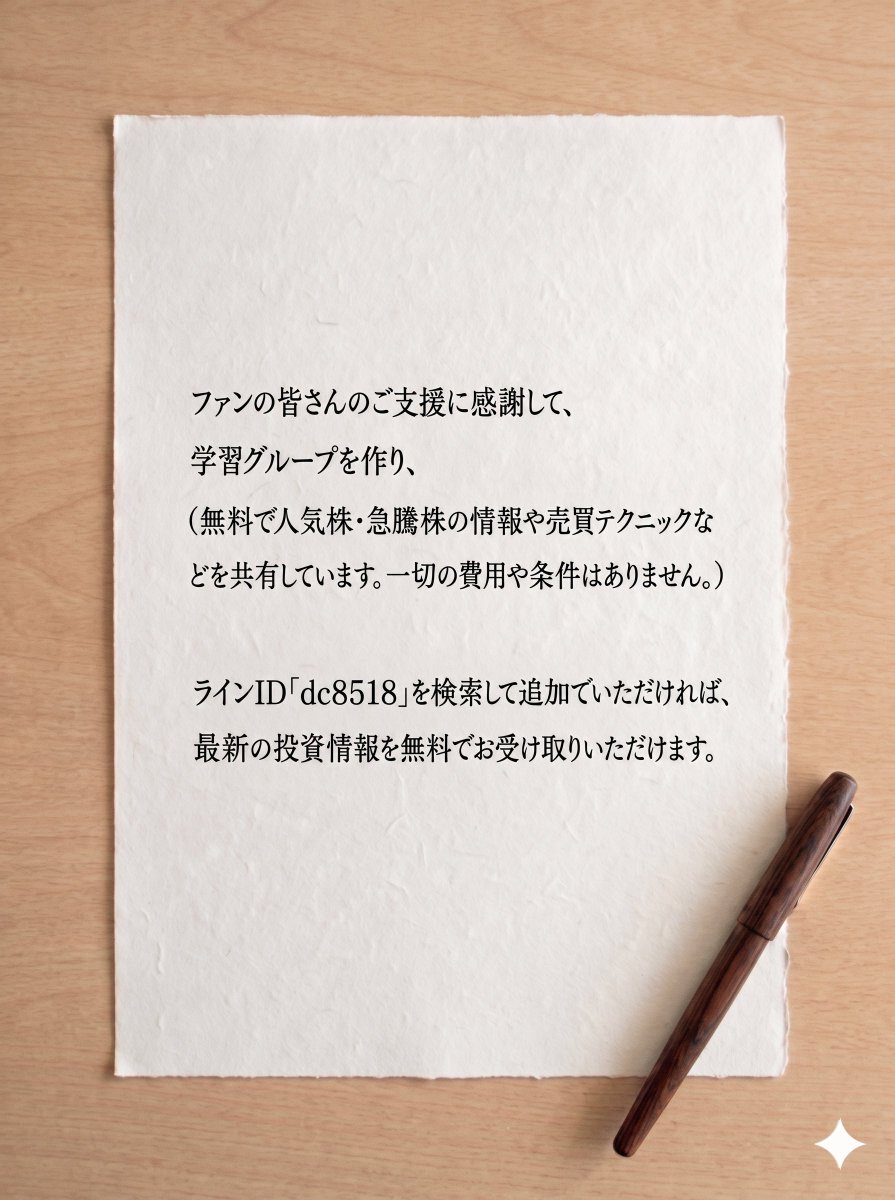 ファンの皆さんのご支援に感謝して、
学習グループを作り、
（無料で人気株・急騰株の情報や売買テクニックな
どを共有しています。一切の費用や条件はありません。）
ラインID「dc8518」を検索して追加でいただければ、
最新の投資情報を無料でお受け取りいただけます。